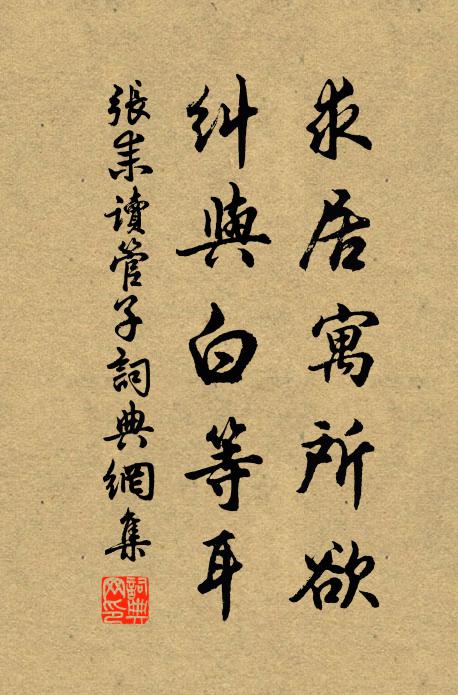 求居寓所欲
糾與白等耳
張耒讀管子詞典網集
詞典網印